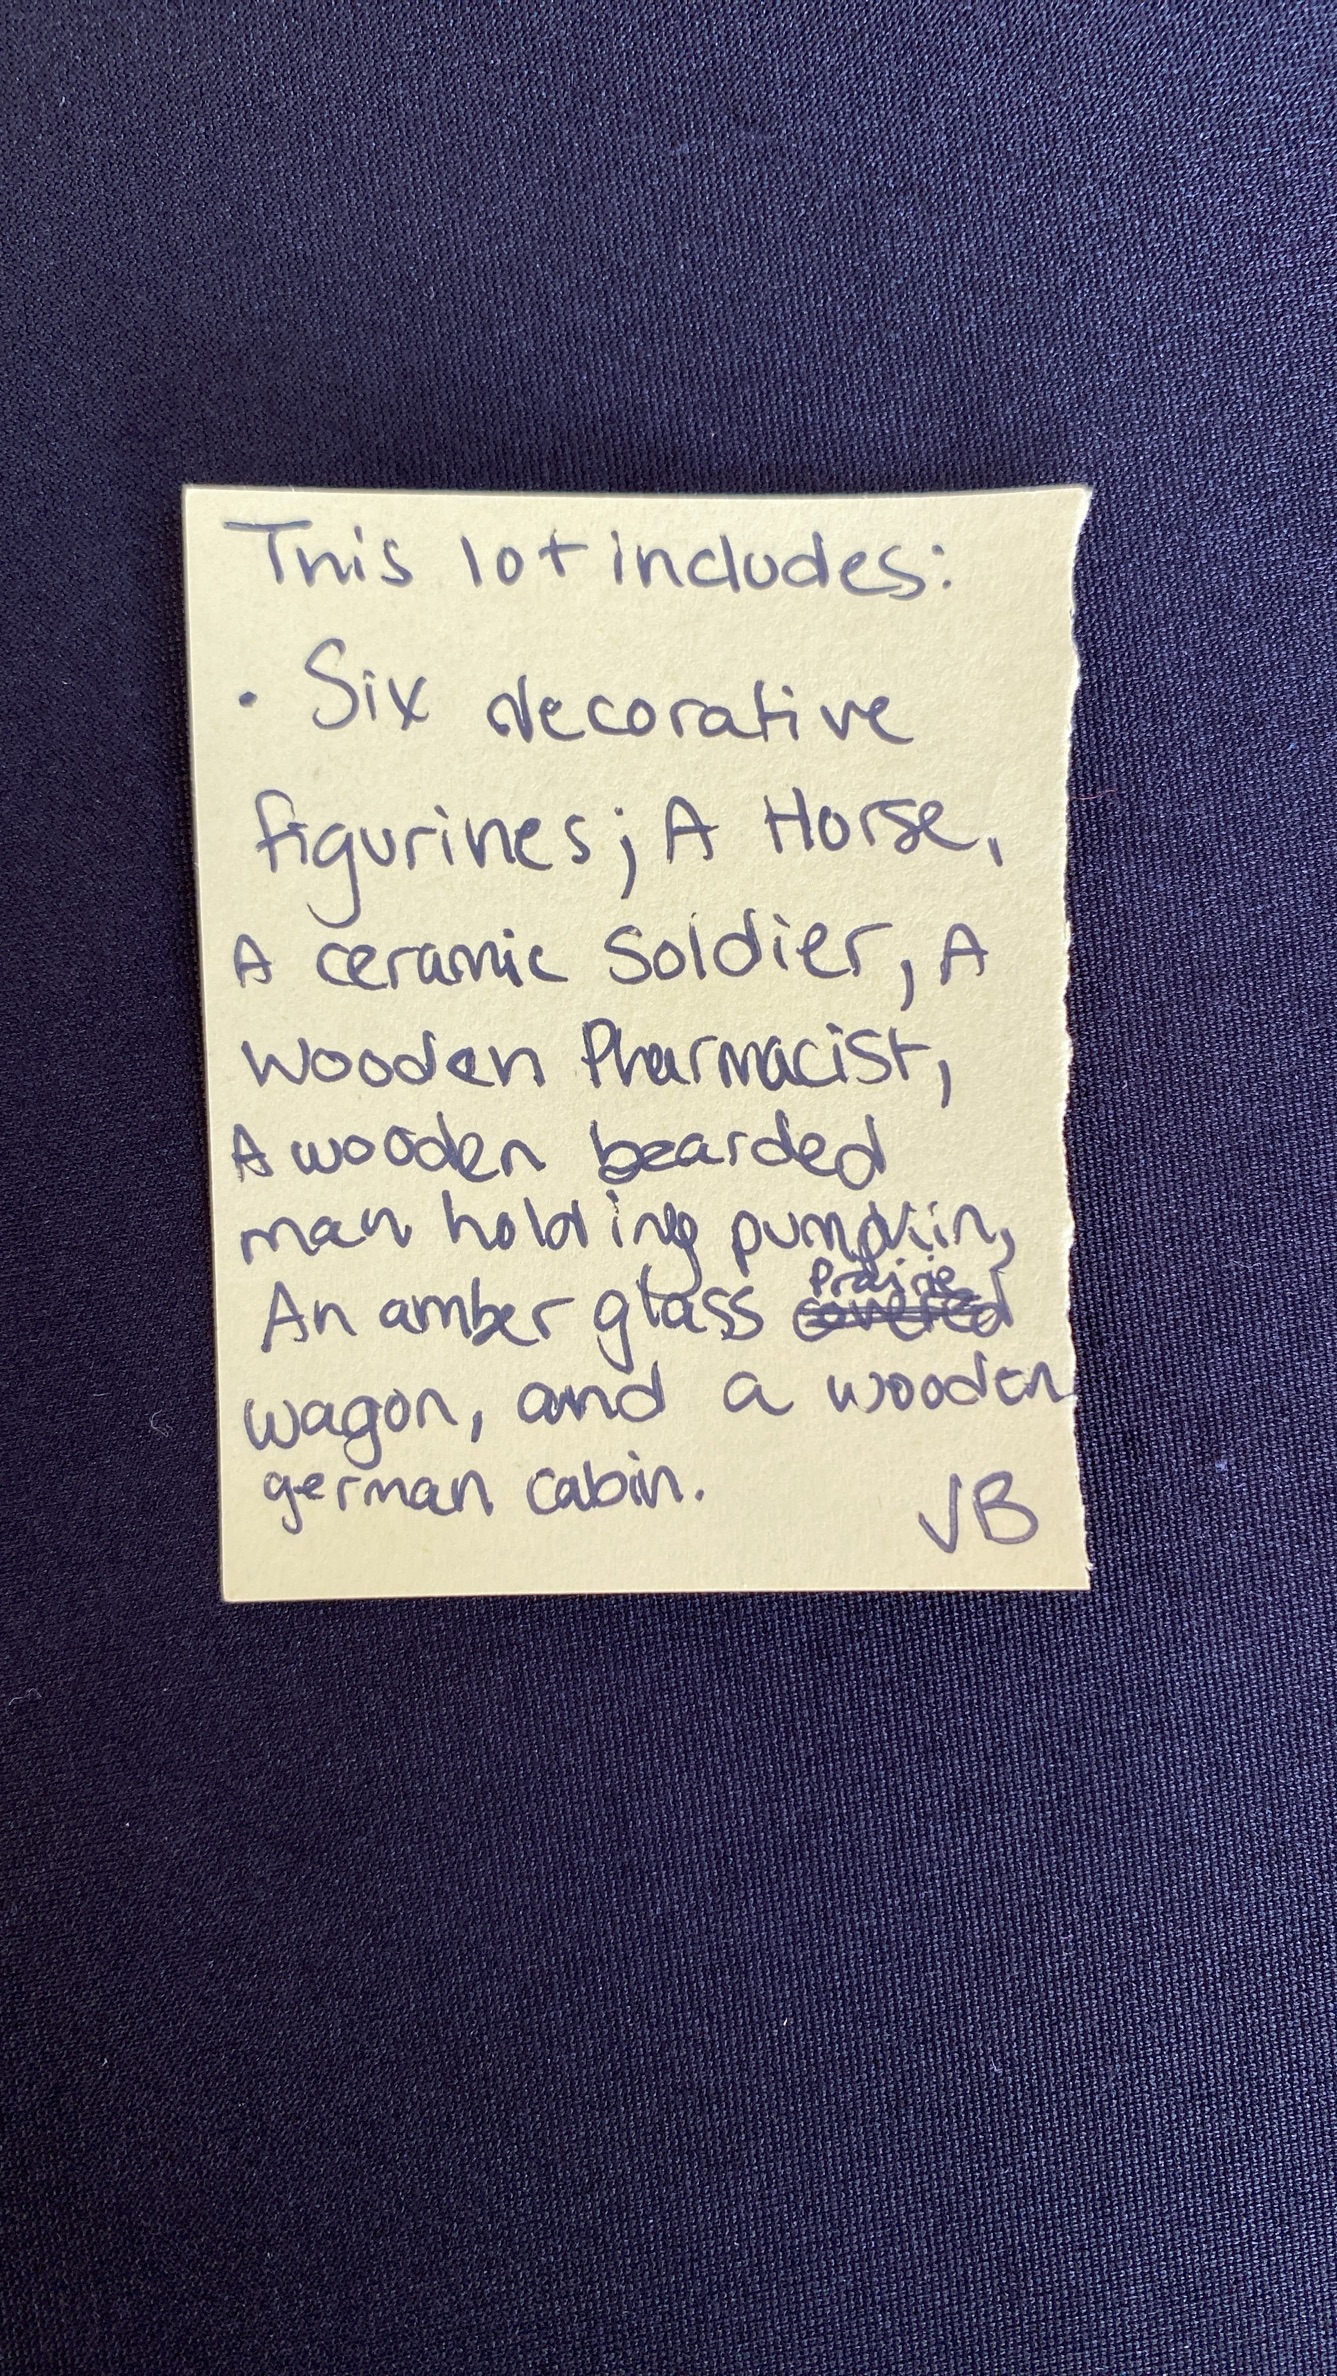 This lot includes:
• Six decorative
figurines; A Horse,
A ceramic Soldier, A
wooden Pharmacist,
A wooden bearded
man holding pumpkin,
An amber glass Prairie covered
wagon, and a wooden
german cabin.
JB